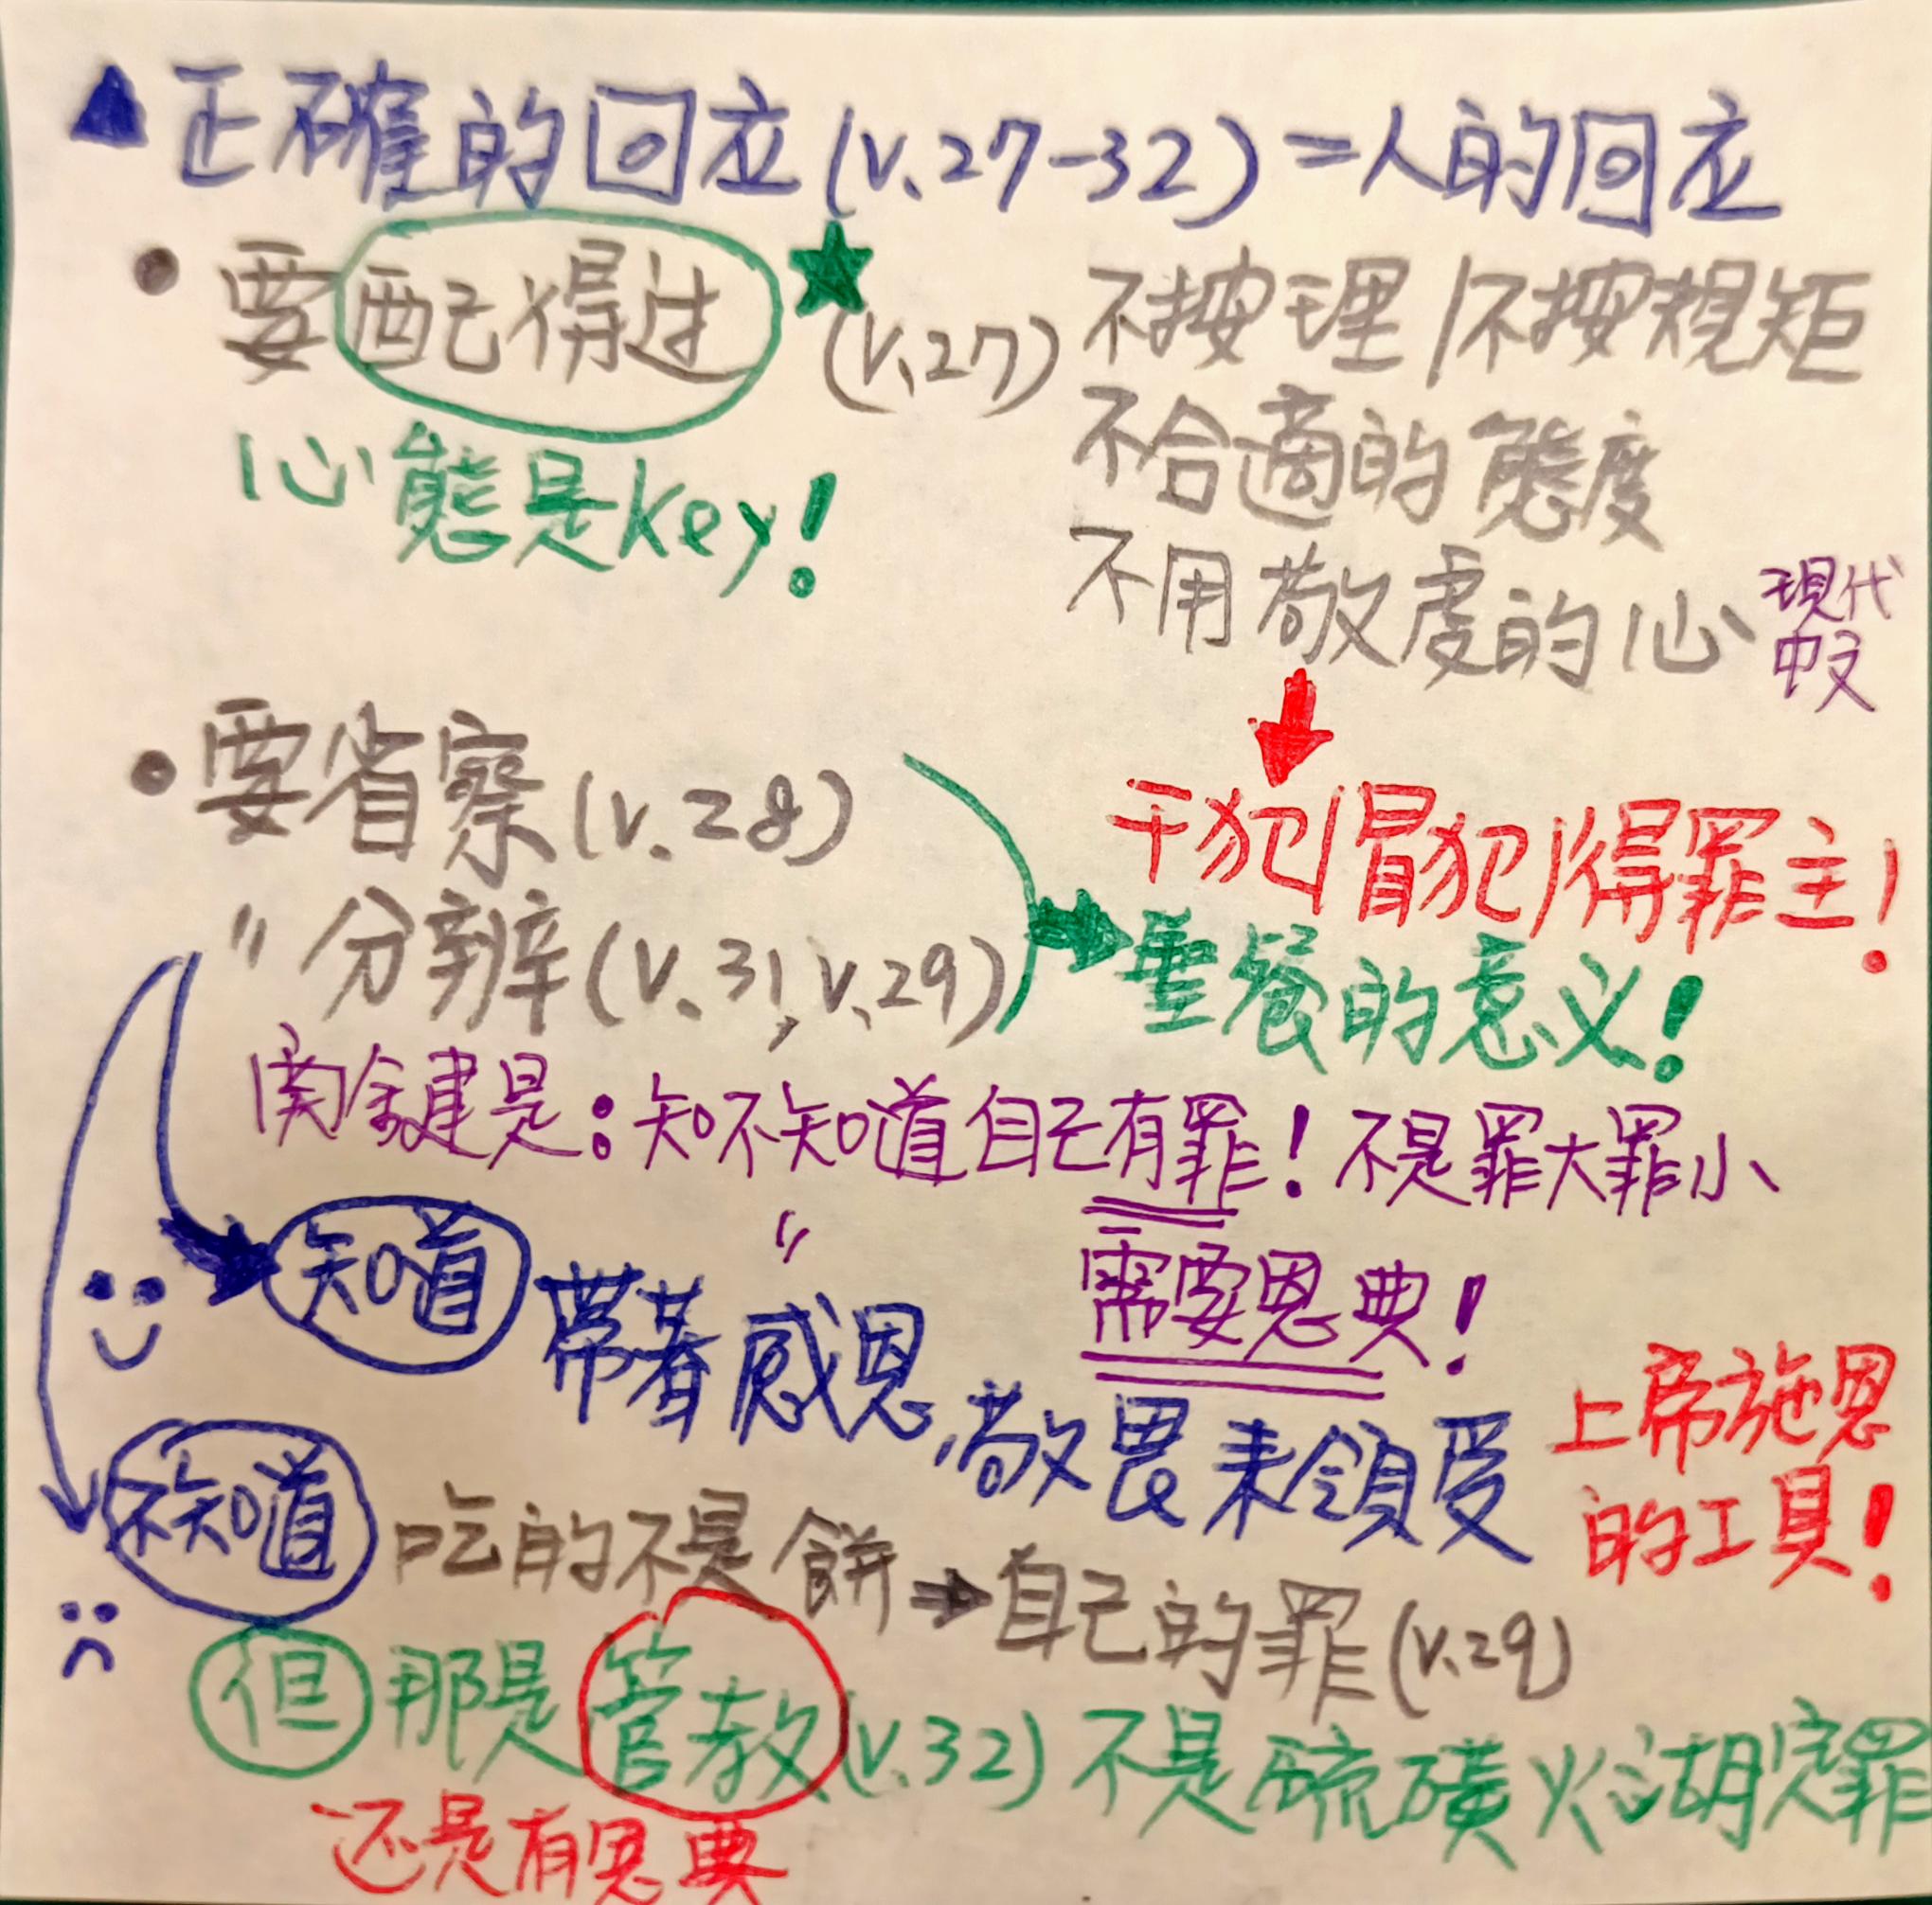 ▲正確的回应(v.27-32)=人的回应
• 要配得过★(v.27)
心態是key!
不按理/不按規矩
不合適的態度
不用敬虔的心
現代
中文
干犯/冒犯/得罪主!
• 要省察(v.28)
〃分辨(v.31, v.29)
聖餐的意义!
関鍵是:知不知道自己有罪!不是罪大罪小
〃 需要恩典!
知道 帶著感恩,敬畏来領受
上帝施恩
的工具!
不知道 吃的不是餅→自己的罪(v.29)
但那是管教(v.32)不是硫磺火湖定罪
还是有恩典